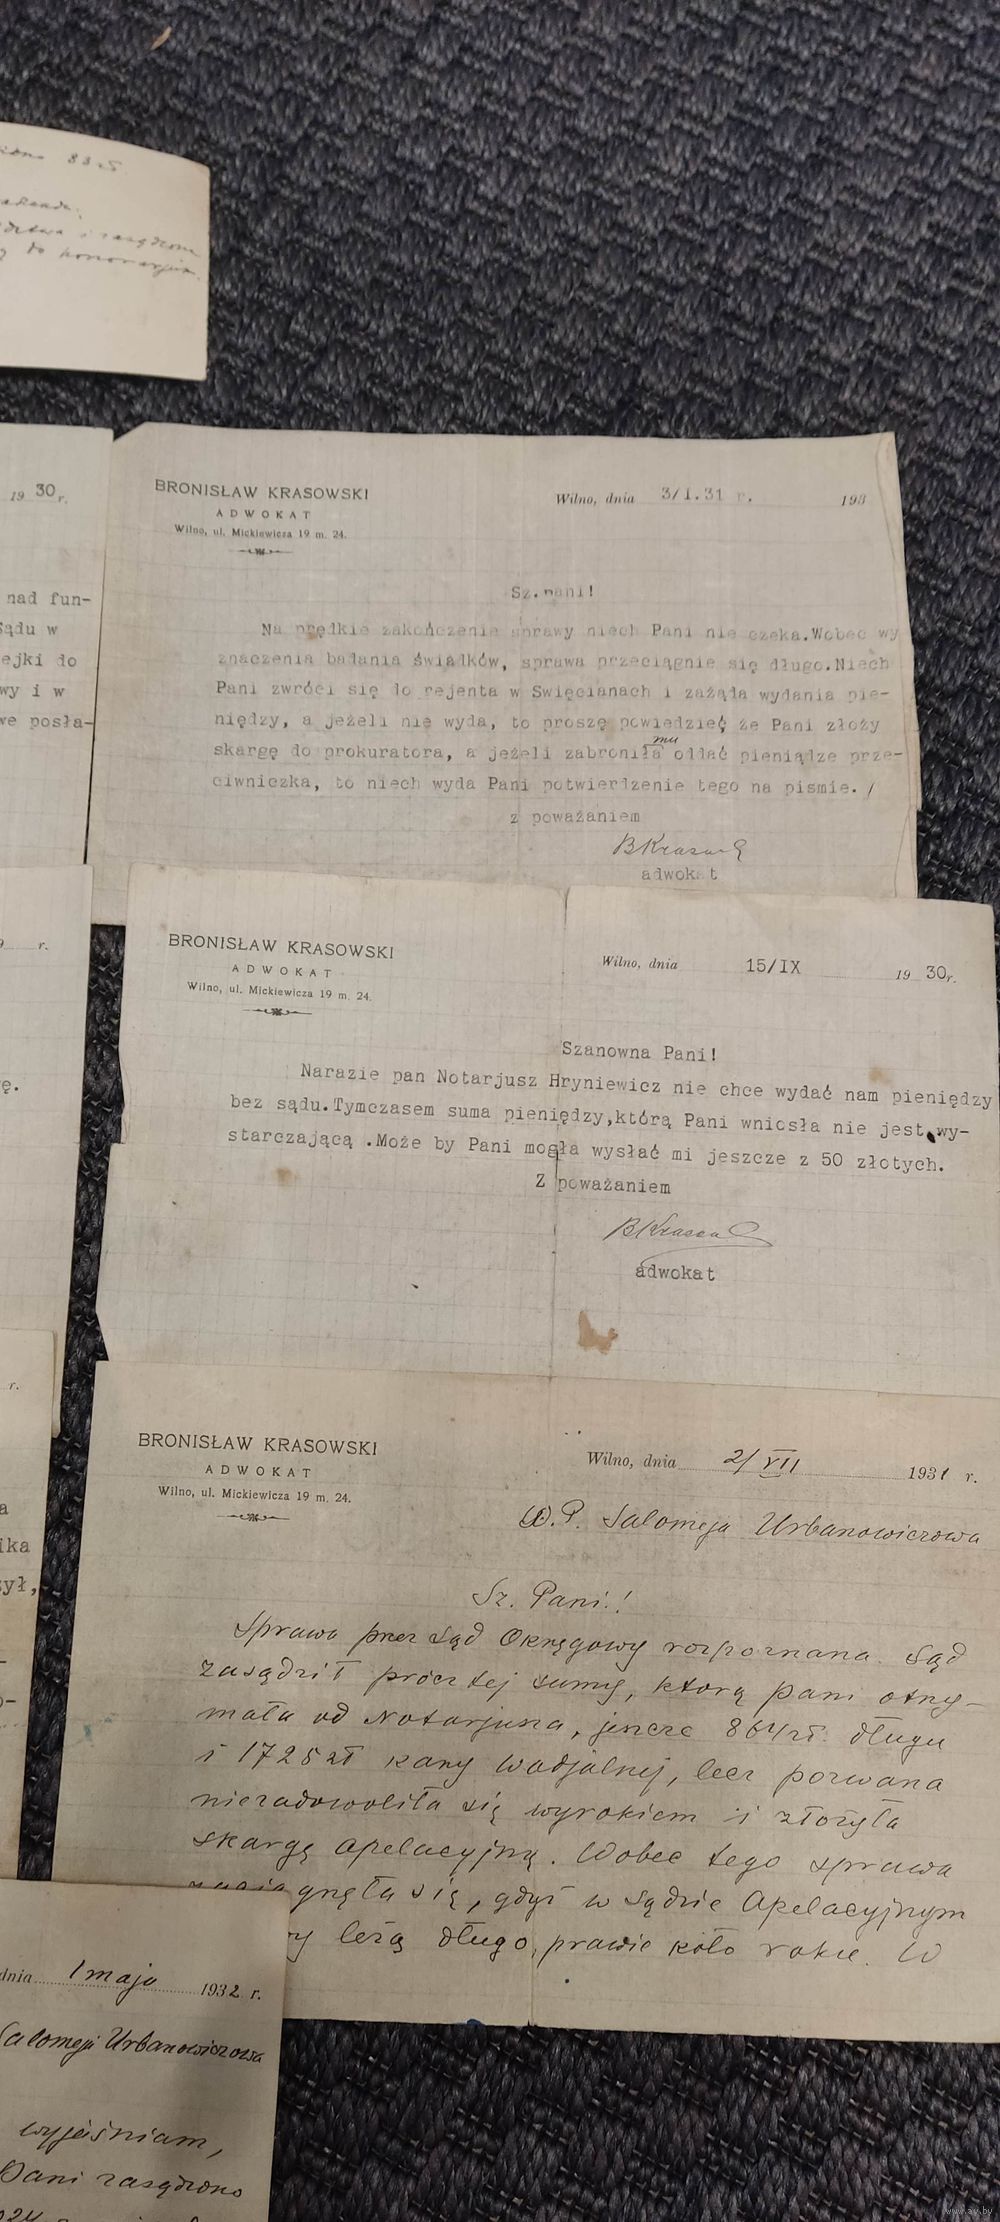 83 zł
i zasądzona
do honorarjum.
19 30 r.
nad fun-
Sądu w
ejki do
wy i w
we posła-
BRONISŁAW KRASOWSKI
ADWOKAT
Wilno, ul. Mickiewicza 19 m. 24.
Wilno, dnia 3/I.31 r. 193
Sz.pani!
Na prędkie zakończenie sprawy niech Pani nie czeka.Wobec wy
znaczenia badania świadków, sprawa przeciągnie się długo.Niech
Pani zwróci się do rejenta w Święcianach i zażąda wydania pie-
niędzy, a jeżeli nie wyda, to proszę powiedzieć że Pani złoży
mu
skargę do prokuratora, a jeżeli zabroniła oddać pieniądze prze-
ciwniczka, to niech wyda Pani potwierdzenie tego na piśmie.
z poważaniem
BKrasow
adwokat
r.
BRONISŁAW KRASOWSKI
ADWOKAT
Wilno, ul. Mickiewicza 19 m. 24.
Wilno, dnia 15/IX 19 30 r.
Szanowna Pani!
Narazie pan Notarjusz Hryniewicz nie chce wydać nam pieniędzy
bez sądu.Tymczasem suma pieniędzy,którą Pani wniosła nie jest wy-
starczającą .Może by Pani mogła wysłać mi jeszcze z 50 złotych.
Z poważaniem
BKrasow
adwokat
ę.
r.
BRONISŁAW KRASOWSKI
ADWOKAT
Wilno, ul. Mickiewicza 19 m. 24.
Wilno, dnia 2/VII 1931 r.
W.P. Salomeja Urbanowiczowa
Sz. Pani!
Sprawa przez Sąd Okręgowy rozpoznana. Sąd
zasądził prócz tej sumy, którą pani otrzy-
mała od Notarjusza, jeszcze 864 zł. długu
i 1725 zł kary wadjalnej, lecz pozwana
niezadowoliła się wyrokiem i złożyła
skargę apelacyjną. Wobec tego sprawa
zaciągnęła się, gdyż w Sądzie Apelacyjnym
leżą długo, prawie koło roku. W
a
ika
ył,
dnia 1 maja 1932 r.
Salomeja Urbanowiczowa
wyjaśniam,
Pani zasądzono
www.ay.by